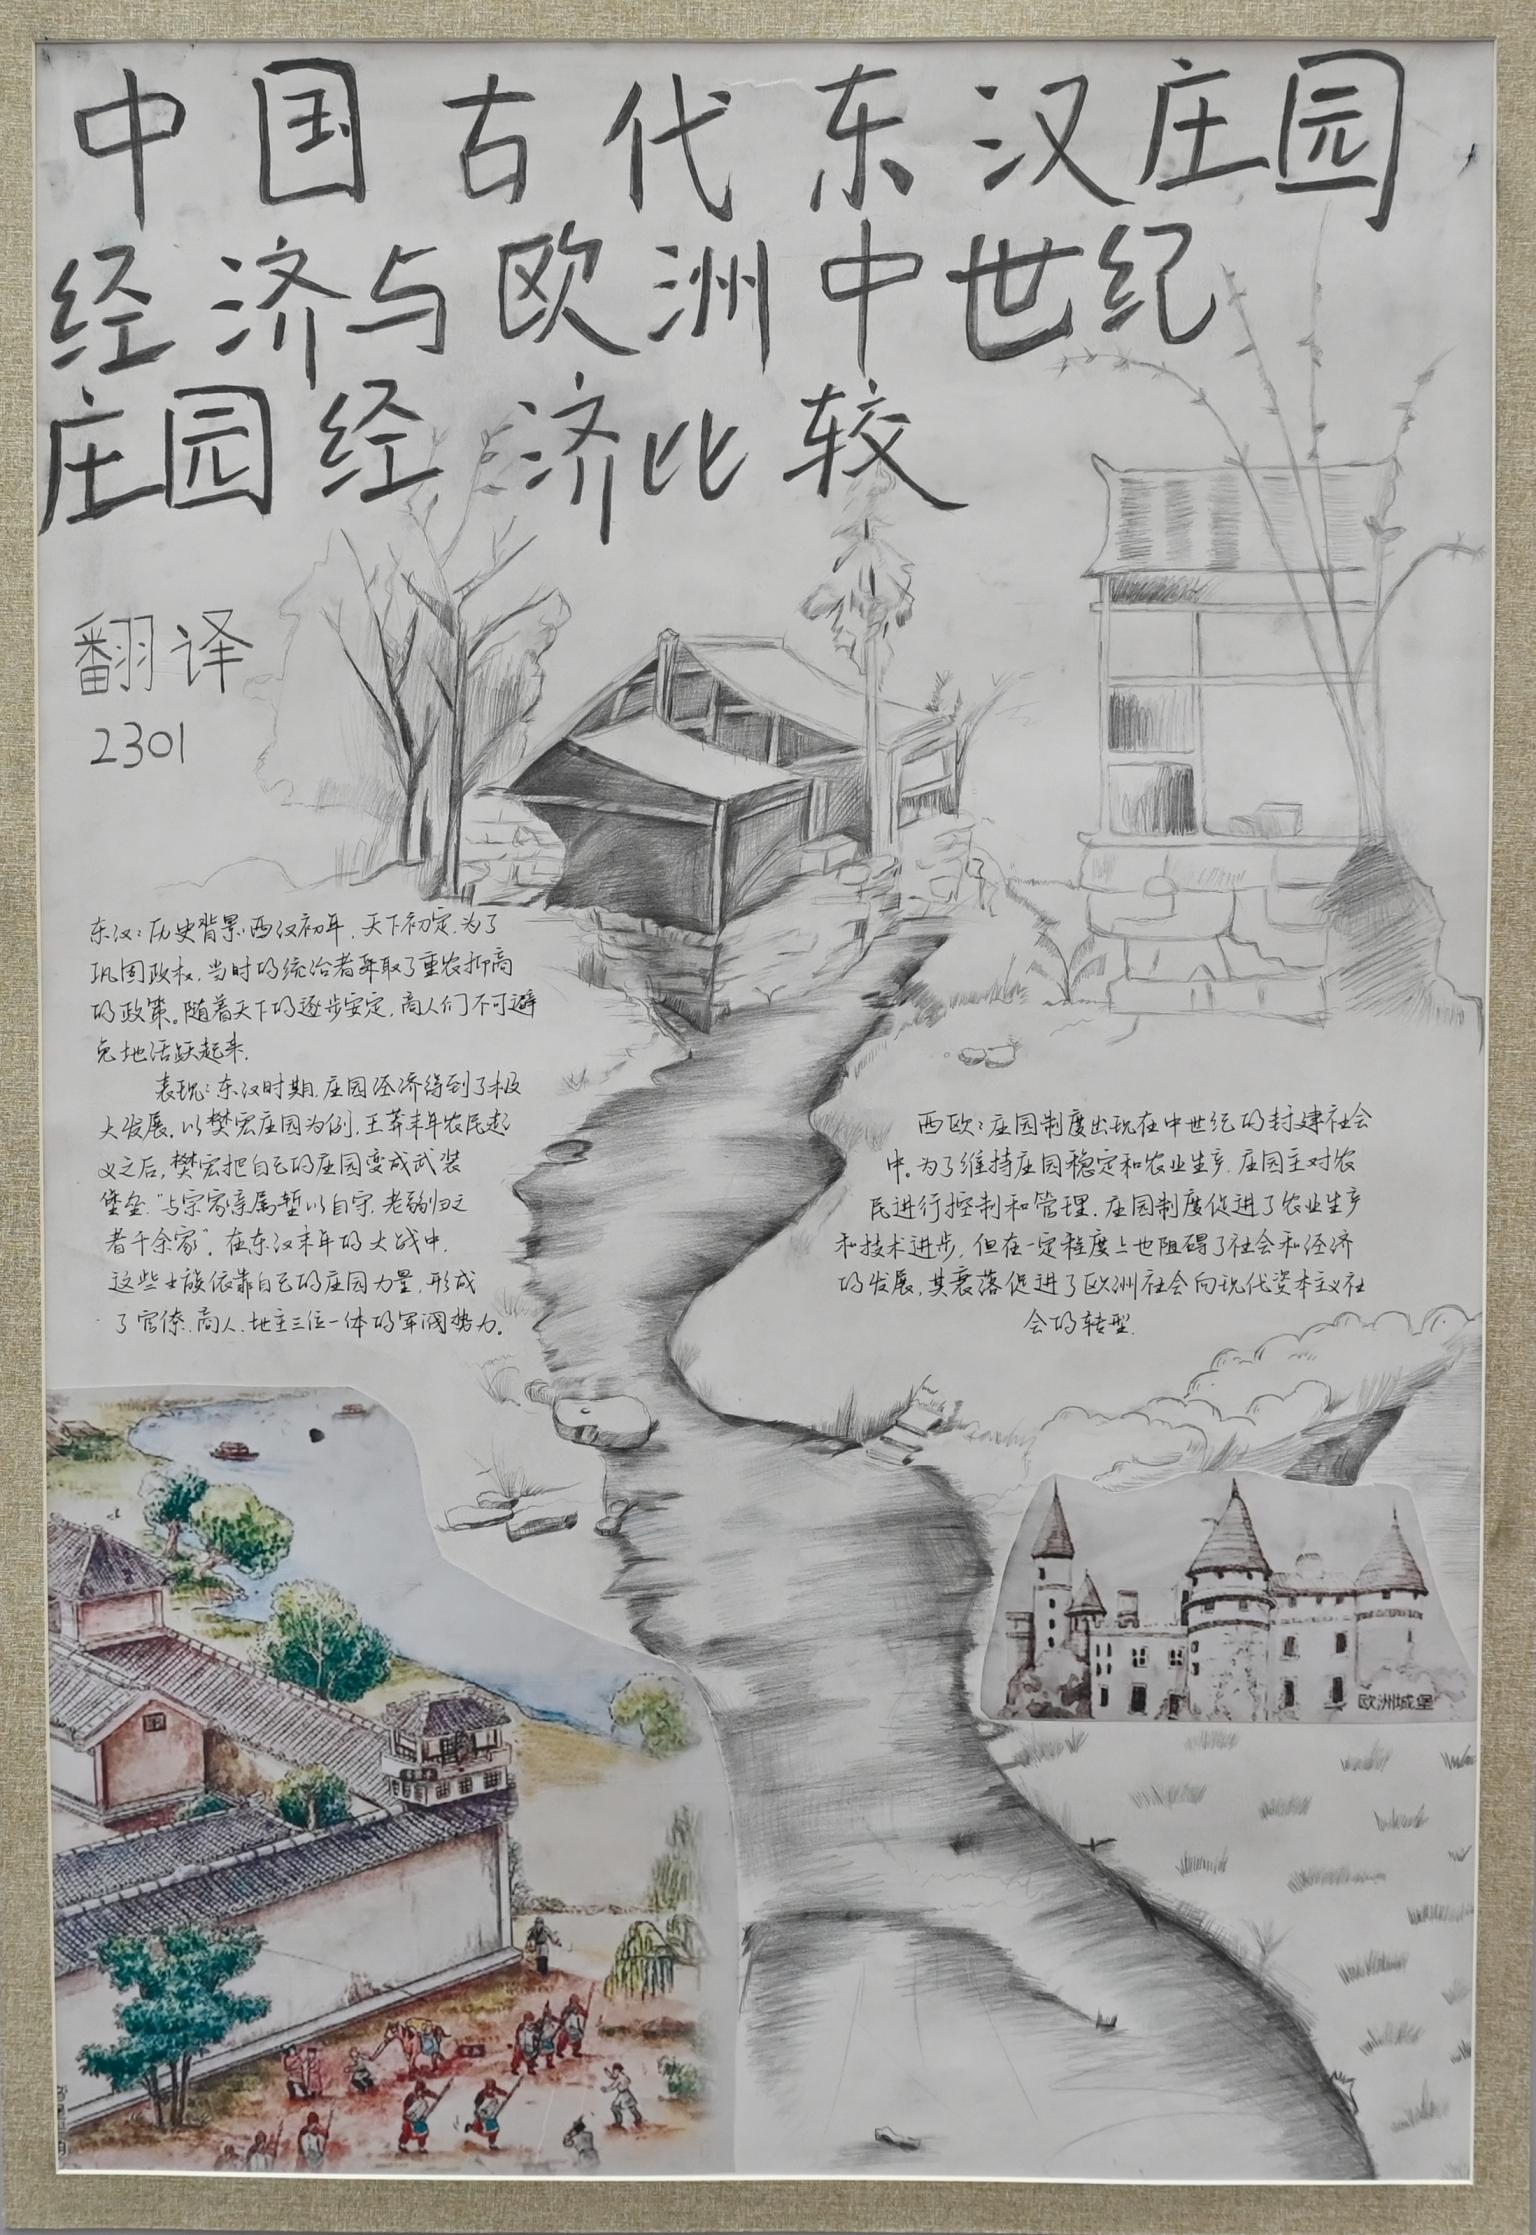 中国古代东汉庄园
经济与欧洲中世纪
庄园经济比较
翻译
2301
东汉：历史背景：西汉初年，天下初定，为了
巩固政权，当时的统治者采取了重农抑商
的政策。随着天下的逐步安定，商人们不可避
免地活跃起来。
表现：东汉时期，庄园经济得到了极
大发展，以樊宏庄园为例，王莽末年农民起
义之后，樊宏把自己的庄园变成武装
堡垒，“与宗家亲属堑以自守，老弱归之
者千余家”。在东汉末年的大战中，
这些士族依靠自己的庄园力量，形成
了官僚、商人、地主三位一体的军阀势力。
西欧：庄园制度出现在中世纪的封建社会
中。为了维持庄园稳定和农业生产，庄园主对农
民进行控制和管理。庄园制度促进了农业生产
和技术进步，但在一定程度上也阻碍了社会和经济
的发展，其衰落促进了欧洲社会向现代资本主义社
会的转型。
欧洲城堡